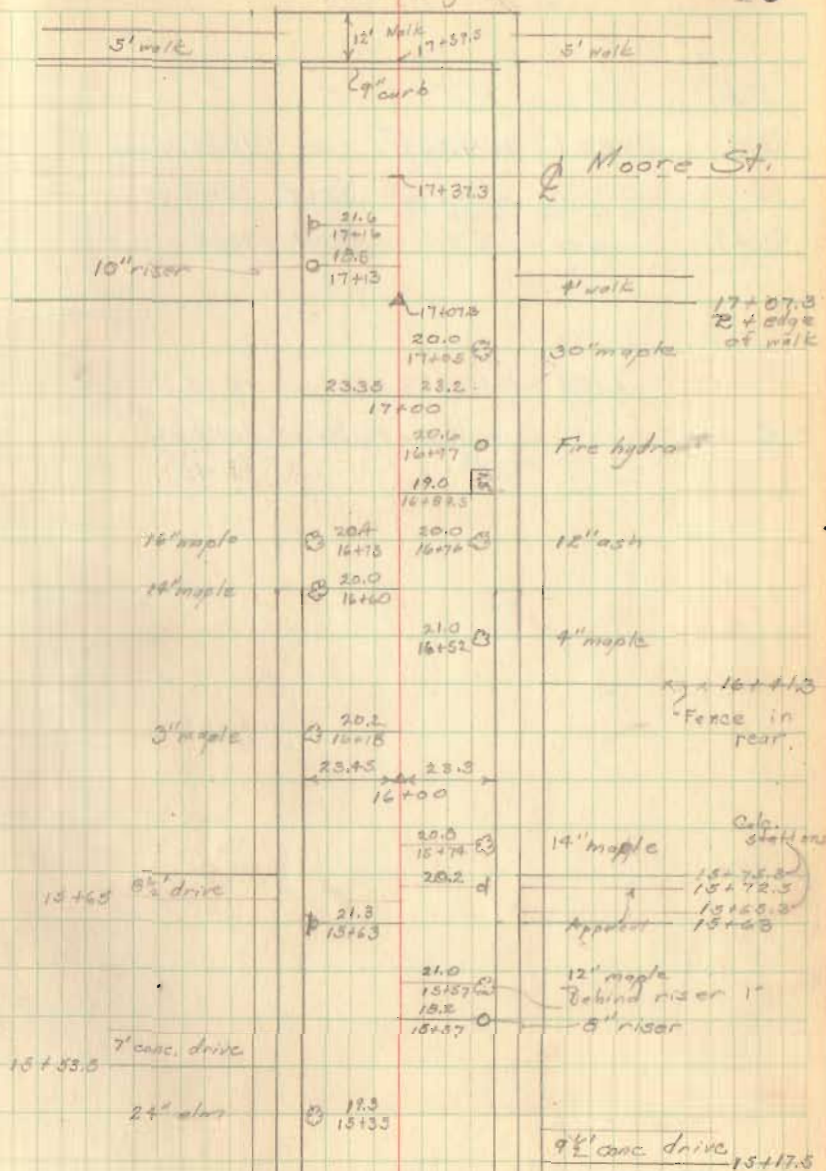 12' Walk
17+57.5
5' walk
5' walk
9" curb
℄ Moore St.
17+37.3
21.6
17+16
10" riser
18.8
17+13
4' walk
17+07.3
17+07.3
& edge
of walk
20.0
17+05
30" maple
23.35 23.2
17+00
20.6
16+97
Fire hydra
19.0
16+87.5
16" maple
20.4
16+78
20.0
16+76
12" ash
14" maple
20.0
16+60
21.0
16+52
4" maple
16+41.3
Fence in
rear.
3" maple
20.2
16+18
23.45 23.3
16+00
Calc.
stations
20.8
15+79
14" maple
15+75.8
20.2
15+72.5
15+65
8½' drive
15+65.8
21.3
15+63
Apparent
15+63
21.0
15+57
12" maple
Behind riser 1'
18.2
15+57
8" riser
7' conc. drive
15+53.5
24" elm
19.3
15+35
9½' conc drive
15+17.5